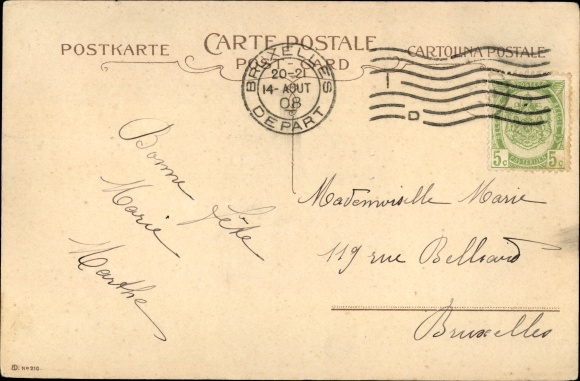 CARTE POSTALE
POSTKARTE
POST CARD
CARTOLINA POSTALE
BRUXELLES
20-21
14-AOUT
08
DEPART
D
5c 5c
Bonne
fête
Marie
Marthe
Mademoiselle Marie
119 rue Belliard
Bruxelles
No 210